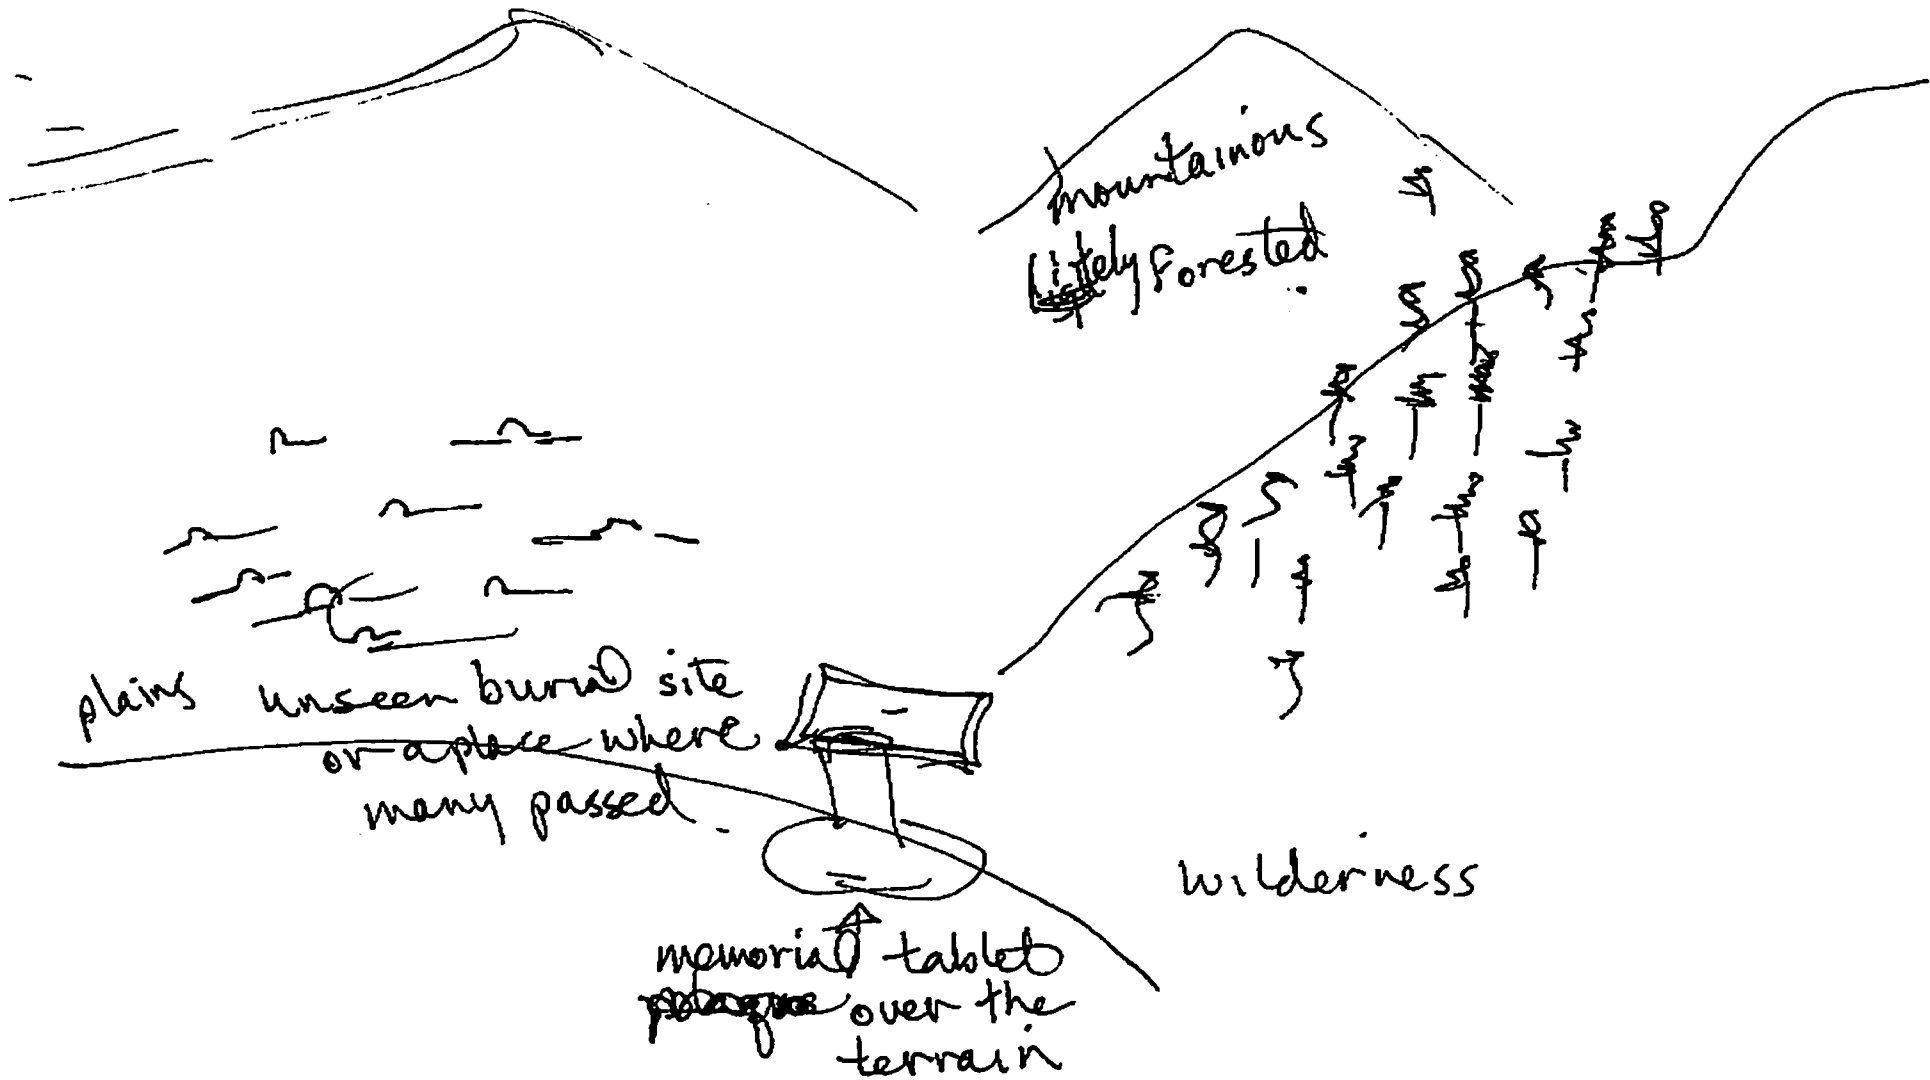 mountainous
Litely Forested
plains
unseen burial site
or a place where
many passed.
wilderness
memorial tablet
over the
terrain